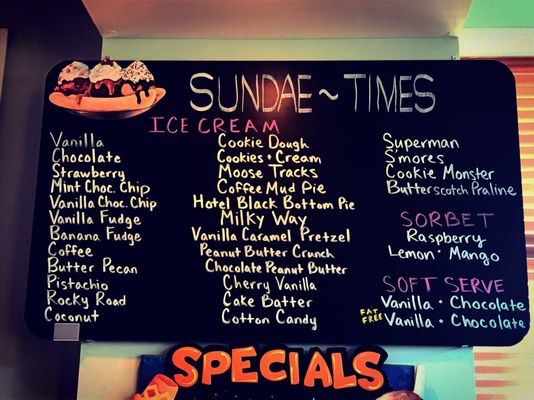 SUNDAE ~ TIMES
ICE CREAM
Vanilla
Chocolate
Strawberry
Mint Choc. Chip
Vanilla Choc. Chip
Vanilla Fudge
Banana Fudge
Coffee
Butter Pecan
Pistachio
Rocky Road
Coconut
Cookie Dough
Cookies • Cream
Moose Tracks
Coffee Mud Pie
Hotel Black Bottom Pie
Milky Way
Vanilla Caramel Pretzel
Peanut Butter Crunch
Chocolate Peanut Butter
Cherry Vanilla
Cake Batter
Cotton Candy
Superman
S'mores
Cookie Monster
Butterscotch Praline
SORBET
Raspberry
Lemon • Mango
SOFT SERVE
Vanilla • Chocolate
FAT FREE Vanilla • Chocolate
SPECIALS